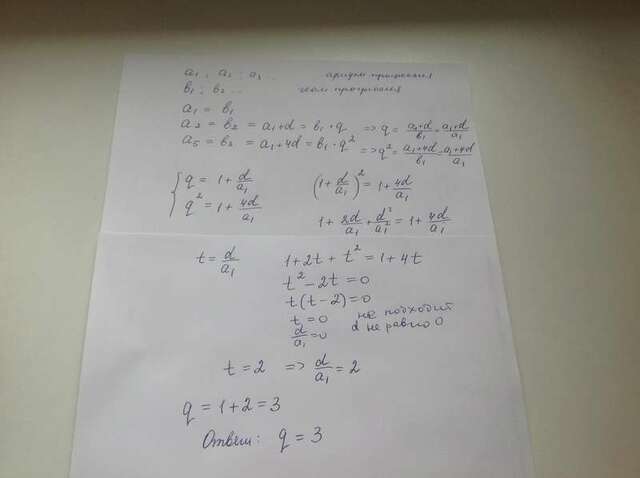 a₁ ; a₂ ; a₃ ... арифм прогрессия
b₁ ; b₂ ... геом прогрессия
a₁ = b₁
a₂ = b₂ = a₁+d = b₁·q => q = (a₁+d)/b₁ = (a₁+d)/a₁
a₅ = b₃ = a₁+4d = b₁·q² => q² = (a₁+4d)/b₁ = (a₁+4d)/a₁
{ q = 1 + d/a₁ (1 + d/a₁)² = 1 + 4d/a₁
q² = 1 + 4d/a₁ 1 + 2d/a₁ + d²/a₁² = 1 + 4d/a₁
t = d/a₁ 1 + 2t + t² = 1 + 4t
t² - 2t = 0
t(t-2) = 0
t = 0 не подходит
d/a₁ = 0 d не равно 0
t = 2 => d/a₁ = 2
q = 1 + 2 = 3
Ответ: q = 3